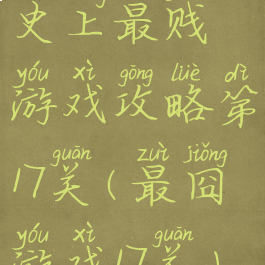 史上最贱
yóu xì gōng lüè dì
游戏攻略第
guān zuì jiǒng
17关(最囧
yóu xì guān
游戏17关)